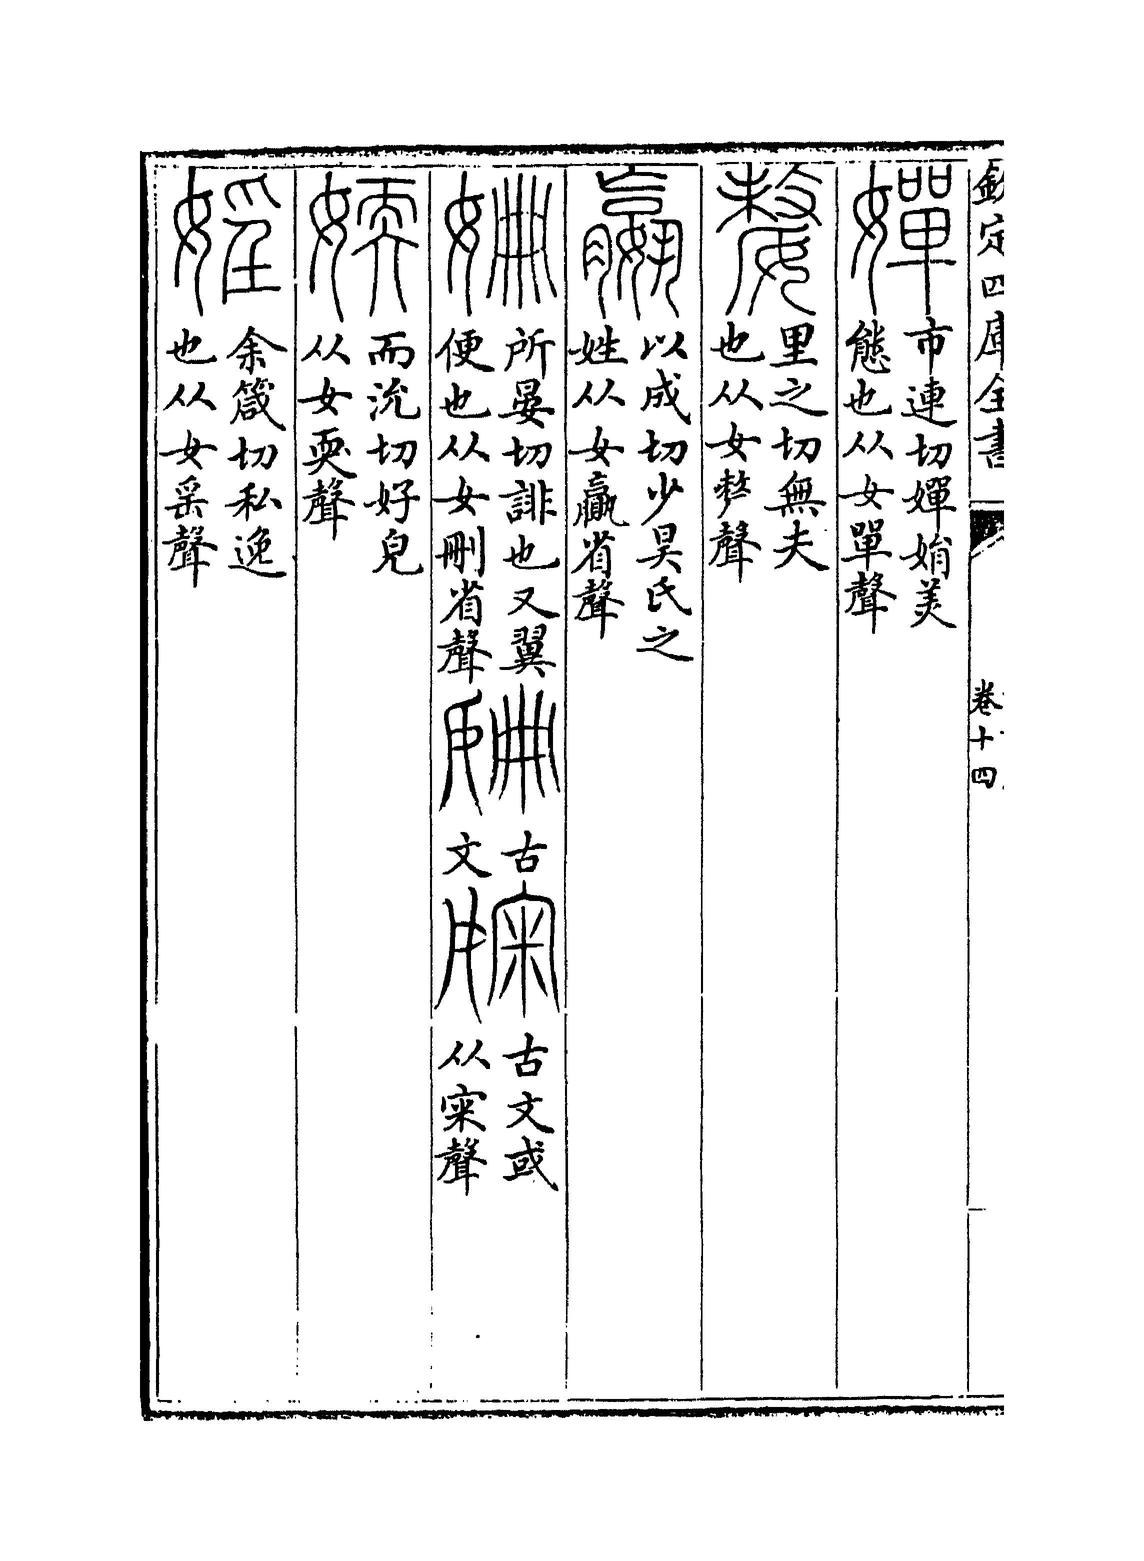 欽定四庫全書
卷十四
嬋
市連切嬋娟美
態也从女單聲
嫠
里之切無夫
也从女𠩺聲
嬴
以成切少昊氏之
姓从女羸省聲
姍
所晏切誹也又翼
便也从女刪省聲
古
文
古文或
从㝥聲
媆
而沇切好皃
从女耎聲
婬
余箴切私逸
也从女㸒聲